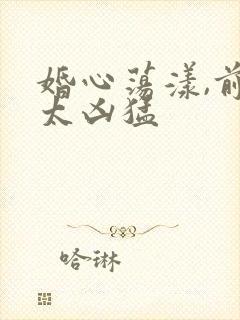 婚心荡漾,前
太凶猛
哈琳